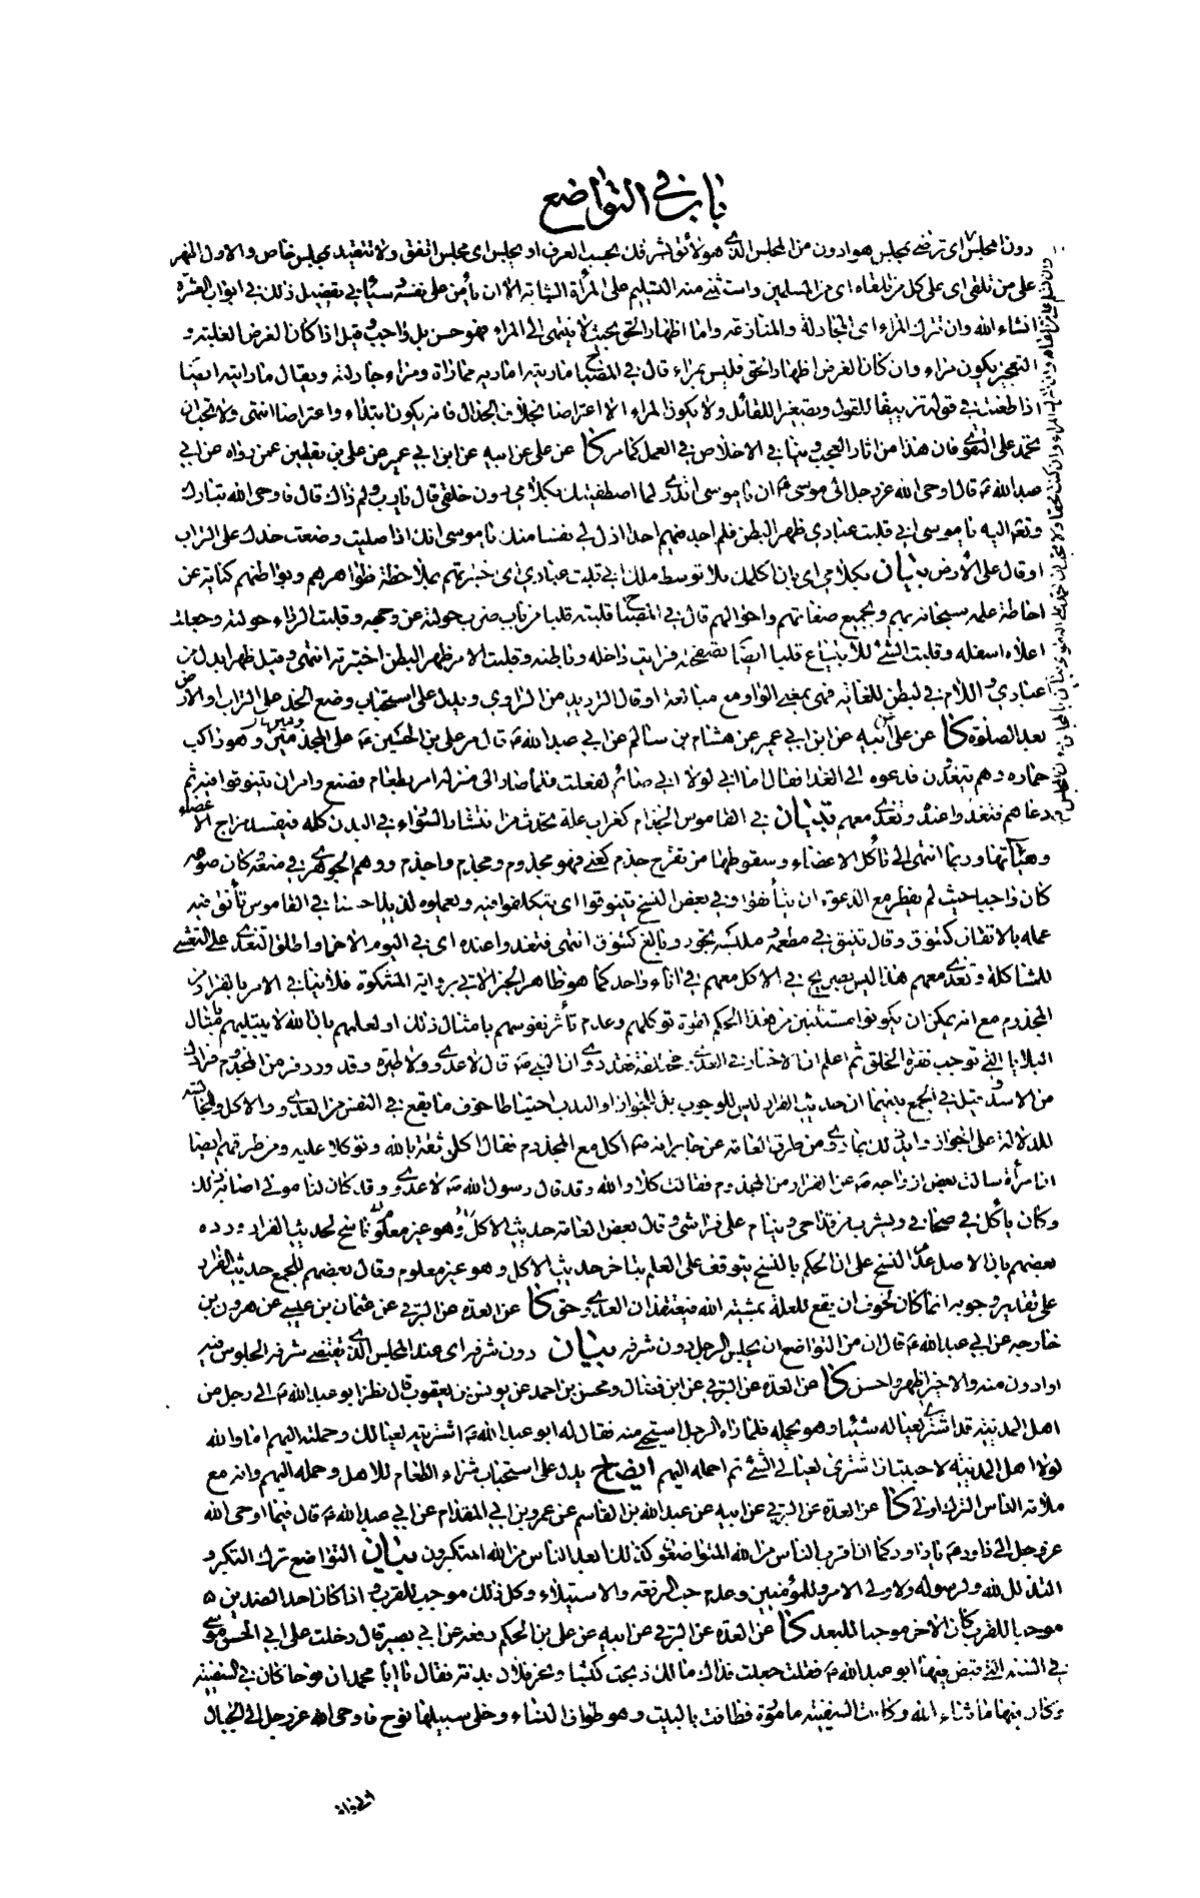 باب في التواضع
دون المجلس اى ترضى بمجلس هو ادون من المجلس الذي هو لائق بشرفك بحسب العرف او بمجلس اى مجلس اتفق ولا تتقيد بمجلس خاص والاول اظهر
على من تلقى اى على كل من تلقاه اى من المسلمين واستثنى منه التسليم على المرأة الشابة الا ان يأمن على نفسه وسيأتي تفصيل ذلك في ابواب العشرة
انشاء الله وان تترك المراء اى المجادلة والمنازعة واما اظهار الحق بحيث لا ينتهى الى المراء فهو حسن بل واجب وقيل اذا كان الغرض الغلبة و
التعجيز يكون مراء وان كان الغرض اظهار الحق فليس بمراء قال في المصباح ماريته اماريه مماراة ومراء جادلته ويقال ماريته ايضا
اذا طعنت في قوله تزييفا للقول وتصغيرا للقائل ولا يكون المراء الا اعتراضا بخلاف الجدال فانه يكون ابتداء واعتراضا انتهى ولا تحب ان
تحمد على التقوى فان هذا من اثار العجب وينافي الاخلاص في العمل كما مر كا عن على عن ابيه عن ابن ابي عمير عن على بن يقطين عمن رواه عن ابي
عبد الله ع قال اوحى الله عز وجل الى موسى ع ان يا موسى اتدري لما اصطفيتك بكلامي دون خلقي قال يا رب ولم ذاك قال فاوحى الله تبارك
وتعه اليه يا موسى اني قلبت عبادي ظهر البطن فلم اجد فيهم احدا اذل لي نفسا منك يا موسى انك اذا صليت وضعت خدك على التراب
او قال على الأرض بيان بكلامي اى بان اكلمك بلا توسط ملك اني قلبت عبادي اى خبرتهم بملاحظة ظواهرهم وبواطنهم كناية عن
احاطة علمه سبحانه بهم وبجميع صفاتهم واحوالهم قال في المصباح قلبته قلبا من باب ضرب حولته عن وجهه وقلبت الرداء حولته وجعلت
اعلاه اسفله وقلبت الشئ للابتياع قلبا ايضا تصفحته فرايت داخله وباطنه وقلبت الامر ظهر البطن اختبرته انتهى وقيل ظهر ابدل من
عبادي واللام في لبطن للغاية فهى بمعنى الواو مع مبالغة او قال الترديد من الراوي ويدل على استحباب وضع الخد على التراب والارض
بعد الصلوة كا عن على عن ابيه عن ابن ابي عمير عن هشام بن سالم عن ابي عبد الله ع قال مر على بن الحسين ع على المجذمين وهو راكب
حماره وهم يتغدون فدعوه الى الغداء فقال اما اني لولا اني صائم لفعلت فلما صار الى منزله امر بطعام فصنع وامر ان يتنوقوا فيه ثم
دعاهم فتغدوا عنده وتغدى معهم بيان في القاموس الجذام كغراب علة تحدث من انتشار السوداء في البدن كله فيفسد مزاج الاعضاء
وهيأتها وربما انتهى الى تأكل الاعضاء وسقوطها من تقرح جذم كعني فهو مجذوم ومجذم واجذم ووهم الجوهري في منعه كان صومه
كان واجبا حيث لم يفطر مع الدعوة ان يتأنقوا وفي بعض النسخ يتنوقوا اى يتكلفوا فيه ويعملوه لذيذا حسنا في القاموس تأنق فيه
عمله بالاتقان كتنوق وقال تنيق في مطعمه وملبسه تجود وبالغ كتنوق انتهى فتغدوا عنده اى في اليوم الاخر او اطلق التغدي على التعشي
للمشاكلة وتغدى معهم هذا ليس بصريح في الاكل معهم في اناء واحد كما هو ظاهر الخبر الاتي برواية المشكوة فلا ينافي الامر بالفرار من
المجذوم مع انه يمكن ان يكونوا مستثنين من هذا الحكم لقوة توكلهم وعدم تأثر نفوسهم بامثال ذلك او لعلمهم بان الله لا يبتليهم بامثال
البلايا التي توجب نفرة الخلق ثم اعلم ان الاخبار في العدوى مختلفة فقد روى ان النبي ص قال لا عدوى ولا طيرة وقد ورد فر من المجذوم فرارك
من الاسد وقيل في الجمع بينهما ان حديث الفرار ليس للوجوب بل للجواز او الندب احتياطا خوف ما يقع في النفس من العدوى والاكل والمجالسة
للدلالة على الجواز وايد ذلك بما روى من طرق العامة عن جابر انه ص اكل مع المجذوم فقال اكل ثقة بالله وتوكلا عليه ومن طرقهم ايضا
ان امرأة سالت بعض ازواجه ص عن الفرار من المجذوم فقالت كلا والله وقد قال رسول الله ص لا عدوى وقد كان لنا مولى اصابه ذلك
وكان يأكل في صحافي ويشرب من قداحي وينام على فراشي وقال بعض العامة حديث الاكل ناسخ لحديث الفرار ورده
بعضهم بان الاصل عدم النسخ على ان الحكم بالنسخ يتوقف على العلم بتاخر حديث الاكل وهو غير معلوم وقال بعضهم للجمع حديث الفرار
على تقدير وجوبه انما كان لخوف ان يقع للعلة بمشية الله فيعتقد ان العدوى حق كا عن العدة عن البرقي عن عثمان بن عيسى عن هرون بن
خارجه عن ابي عبد الله ع قال ان من التواضع ان يجلس الرجل دون شرفه بيان دون شرفه اى عند المجلس الذي يقتضي شرفه الجلوس فيه
او ادون منه والاخير اظهر واحسن كا عن العدة عن البرقي عن ابن فضال ومحسن بن احمد عن يونس بن يعقوب قال نظر ابو عبد الله ع الى رجل من
اهل المدينة قد اشترى لعياله شيئا وهو يحمله فلما راه الرجل استحيى منه فقال له ابو عبد الله ع اشتريته لعيالك وحملته اليهم اما والله
لولا اهل المدينه لاحببت ان اشترى لعيالي الشئ ثم احمله اليهم ايضاح يدل على استحباب شراء الطعام للاهل وحمله اليهم وانه مع
ملامة الناس الترك اولى كا عن العدة عن البرقي عن ابيه عن عبد الله بن القاسم عن عمرو بن ابي المقدام عن ابي عبد الله ع قال فيما اوحى الله
عز وجل الى داود ع يا داود كما ان اقرب الناس من الله المتواضعون كذلك ابعد الناس من الله المتكبرون بيان التواضع ترك التكبر و
التذلل لله ولرسوله ولاولى الامر وللمؤمنين وعدم حب الرفعة والاستيلاء وكل ذلك موجب للقرب واذا كان احد الضدين
موجبا للقرب كان الاخر موجبا للبعد كا عن العدة عن البرقي عن ابيه عن على بن الحكم رفعه عن ابي بصير قال دخلت على ابي الحسن موسى
في السنة التي قبض فيها ابو عبد الله ع فقلت جعلت فداك مالك ذبحت كبشا ونحر فلان بدنة فقال يا ابا محمد ان نوحا كان في السفينة
وكان فيها ما شاء الله وكانت السفينة مامورة فطافت بالبيت وهو طواف النساء وخلى سبيلها نوح فاوحى الله عز وجل الى الجبال